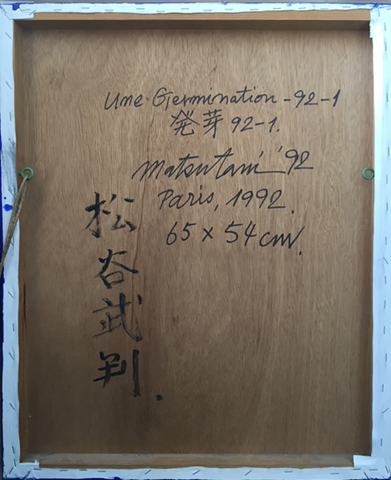 une Germination - 92-1
発芽 92-1.
Matsutani '92
Paris, 1992.
65 x 54 cm.
松谷武判.